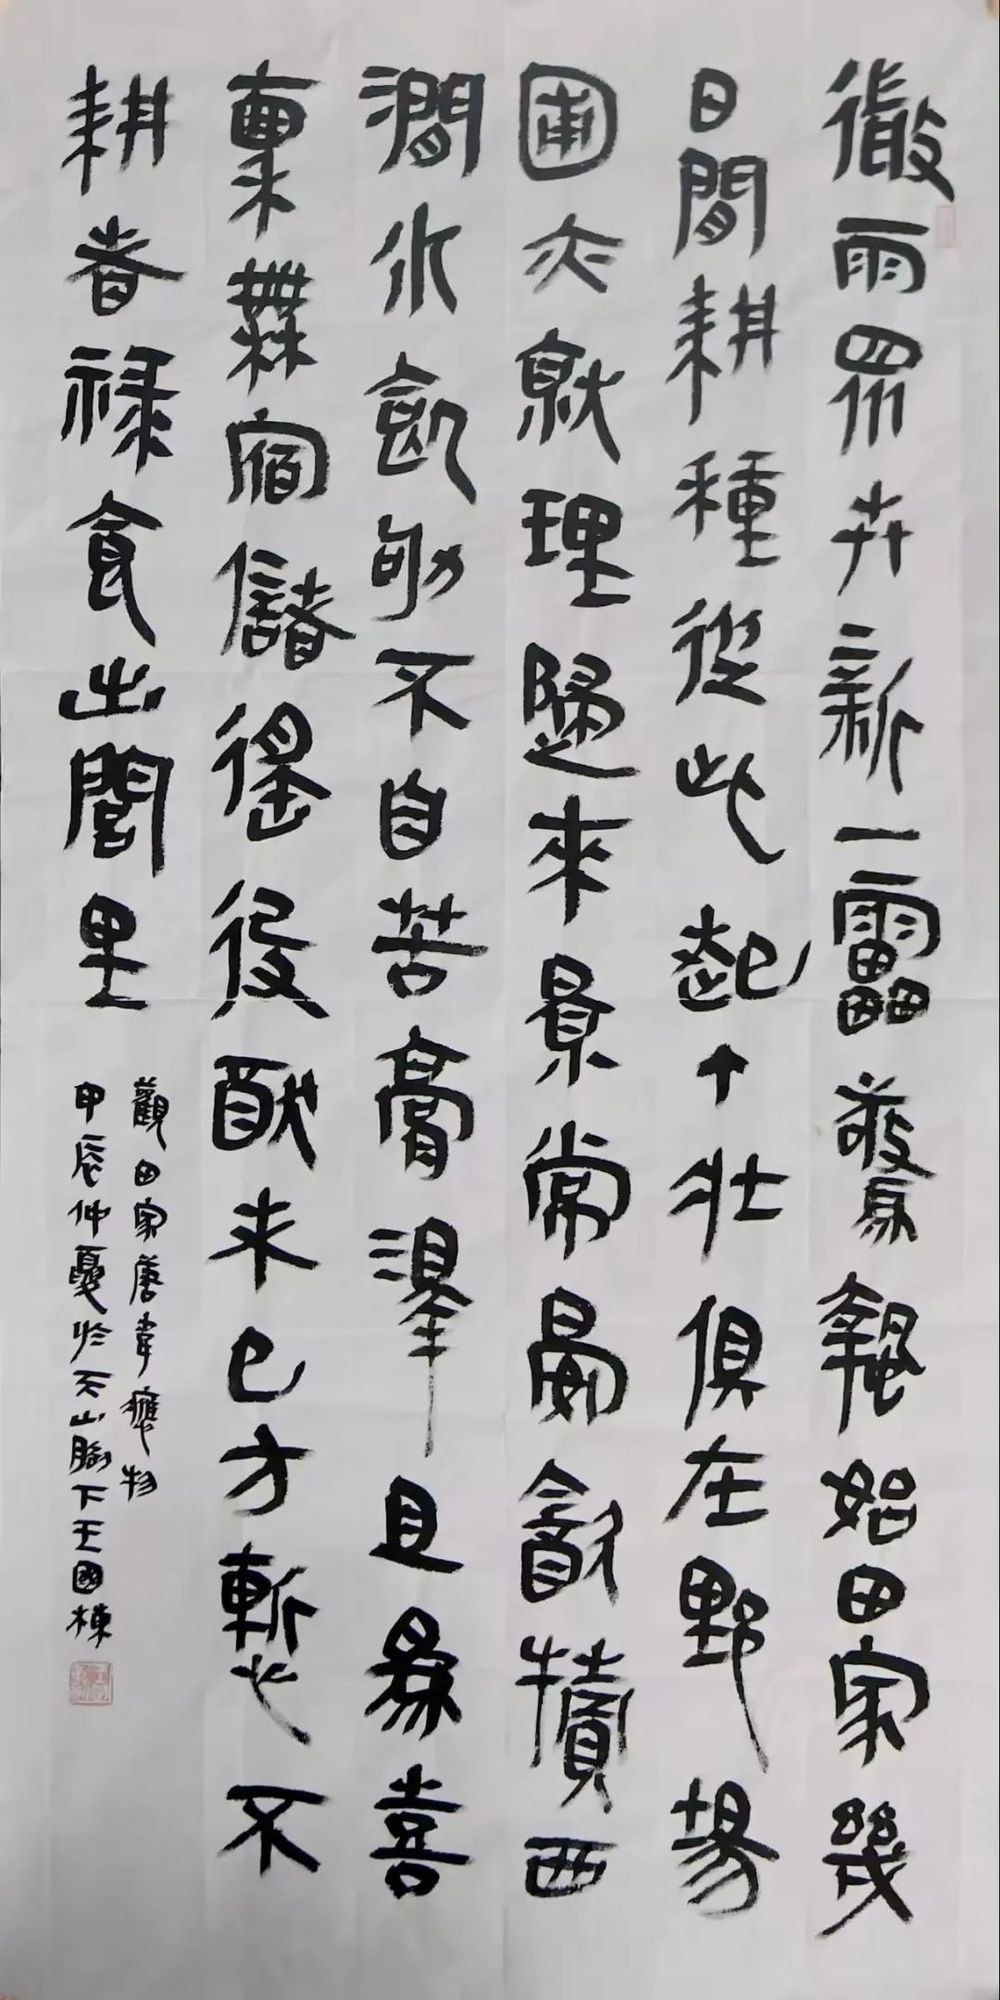 微雨眾卉新一雷驚蟄始田家幾
日閒耕種從此起丁壯俱在野場
圃亦就理歸來景常晏飲犢西
澗水飢劬不自苦膏澤且爲喜
稟無宿儲徭役猷未已方慙不
耕者祿食出閭里
觀田家唐韋應物
甲辰仲夏於天山腳下王國棟